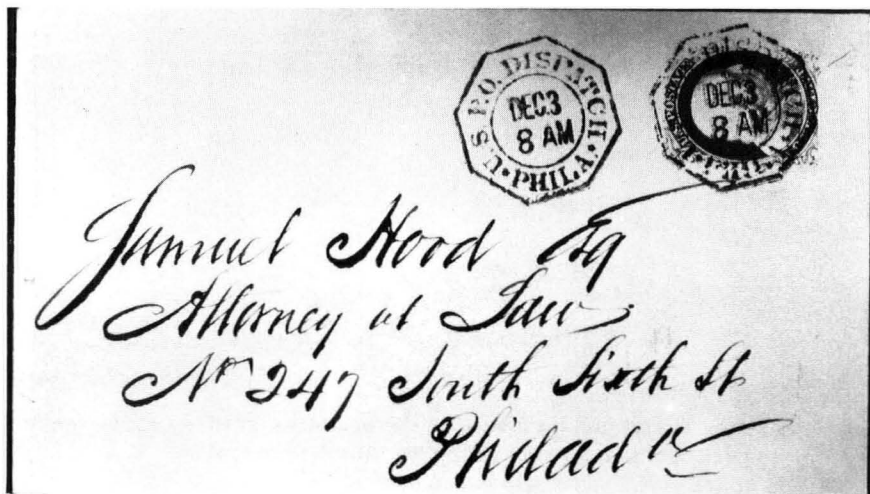 U. S. P. O. DISPATCH. PHILA.
DEC 3
8 AM
DEC 3
8 AM
Samuel Hood Esq
Attorney at Law
No 247 South Sixth St
Philada